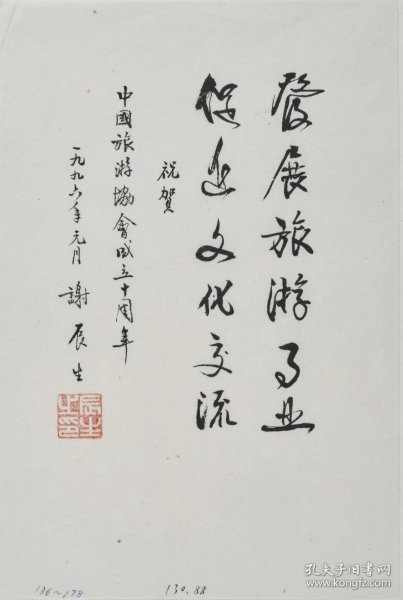 發展旅游事业
促进文化交流
祝賀
中國旅游協會成立十周年
一九九六年元月 謝辰生
辰生之印
136~178
130.88
孔夫子旧书网